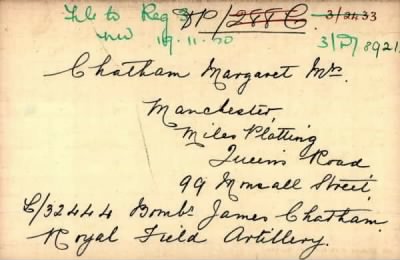 File to Reg 3 DP/288 C. 3/2433
19.11.30 3/P/8921
Chatham Margaret Mrs.
Manchester,
Miles Platting
Queen's Road
99 Monsall Street,
L/32444 Bombr James Chatham.
Royal Field Artillery.